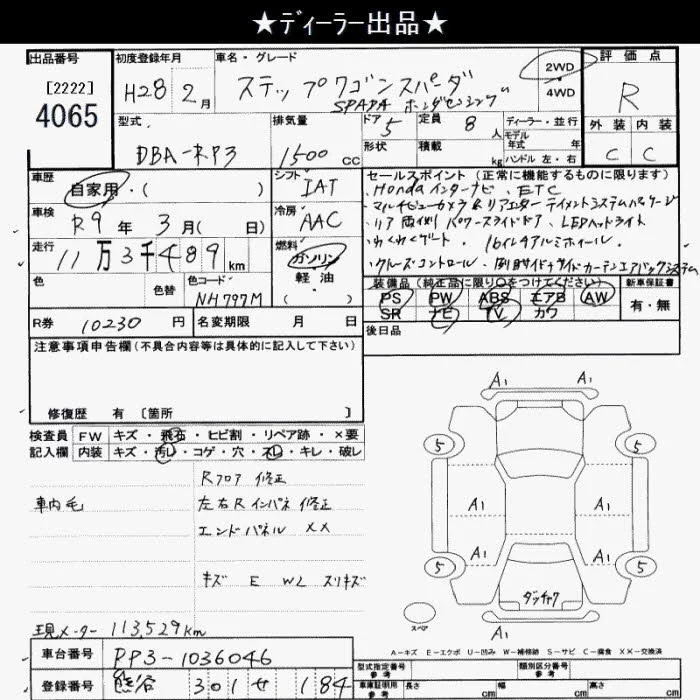 ★ディーラー出品★
出品番号
[2222]
4065
初度登録年月
H28年2月
車名・グレード
ステップワゴンスパーダ
SPADA ホンダセンシング
2WD
4WD
評価点
R
外装 内装
C C
型式
DBA-RP3
排気量
1500cc
ドア 5
定員 8人
形状
積載 kg
ディーラー・並行
モデル年式 年式
ハンドル 左・右
車歴
自家用・( )
シフト
IAT
車検
R9年3月( 日)
冷房
AAC
走行
11万3千489km
燃料
ガソリン
軽油
( )
色
色替
色コード
NH797M
R券 10230円
名変期限 月 日
セールスポイント(正常に機能するものに限ります)
・Honda インターナビ ・ETC
・マルチビューカメラ&リアエンターテイメントシステムパッケージ
・リア両側パワースライドドア、LEDヘッドライト
・わくわくゲート、16インチアルミホイール、
・クルーズコントロール、前席サイド&サイドカーテンエアバッグシステム
装備品(純正品に限り○をつけてください)
PS PW ABS エアB AW
SR ナビ TV カワ
新車保証書
有・無
後日品
注意事項申告欄(不具合内容等は具体的に記入して下さい)
修復歴 有 [箇所 ]
検査員記入欄
FW キズ・飛石・ヒビ割・リペア跡・×要
内装 キズ・汚レ・コゲ・穴・スレ・キレ・破レ
Rフロア 修正
車内毛
左右Rインパネ 修正
エンドパネル XX
キズ E W2 スリキズ
現メーター 113,529km
車台番号
RP3-1036046
登録番号
熊谷 301 せ 184
A1 A1
5 5
A1 A1
A1 A1
5 5
ダッチャク
スペア
A1
A-キズ E-エクボ U-凹み W-補修跡 S-サビ C-腐食 XX-交換済
型式指定番号
参考
類別区分番号
参考
車庫証明用
参考
長さ cm
幅 cm
高さ cm